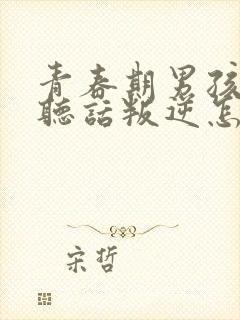 青春期男孩
聽話叛逆怎
宋哲